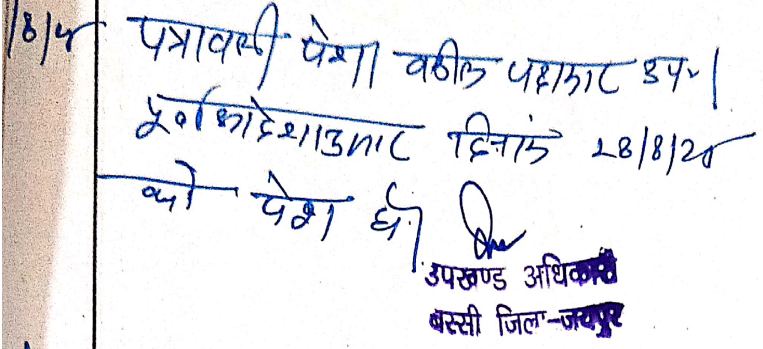 /8/20 पत्रावली पेश। वकील पक्षकार उप.।
पूर्व आदेशानुसार दिनांक 28/8/20
को पेश हो।
उपखण्ड अधिकारी
बस्सी जिला-जयपुर